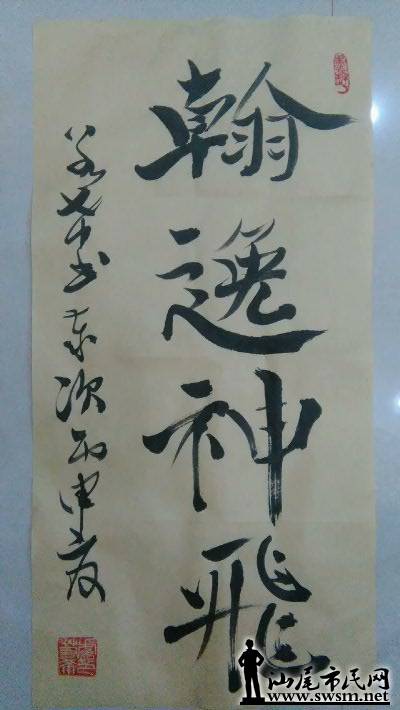 翰逸神飛
书 岁次丙申夏
汕尾市民网
www.swsm.net